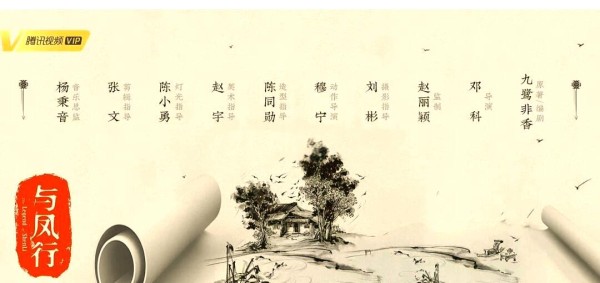 腾讯视频 VIP
原著/编剧
九鹭非香
导演
邓科
监制
赵丽颖
摄影指导
刘彬
动作导演
穆宁
造型指导
陈同勋
美术指导
赵宇
灯光指导
陈小勇
剪辑指导
张文
音乐总监
杨秉音
与凤行